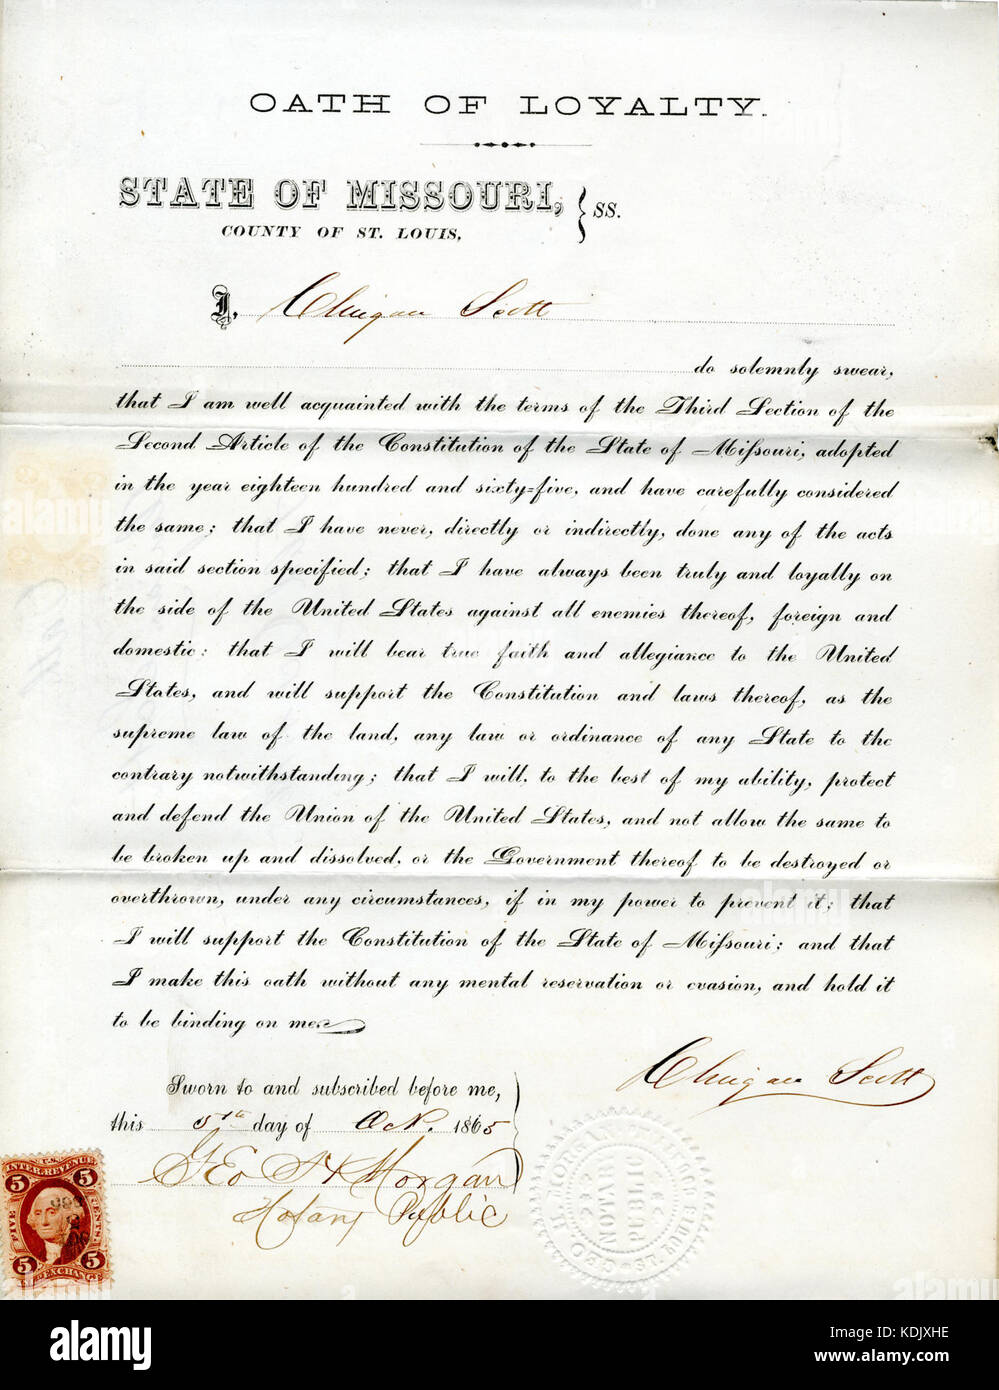 OATH OF LOYALTY.
STATE OF MISSOURI, } SS.
COUNTY OF ST. LOUIS,
I, Scott
do solemnly swear,
that I am well acquainted with the terms of the Third Section of the
Second Article of the Constitution of the State of Mißouri, adopted
in the year eighteen hundred and sixty=five, and have carefully considered
the same; that I have never, directly or indirectly, done any of the acts
in said section specified; that I have always been truly and loyally on
the side of the United States against all enemies thereof, foreign and
domestic; that I will bear true faith and allegiance to the United
States, and will support the Constitution and laws thereof, as the
supreme law of the land, any law or ordinance of any State to the
contrary notwithstanding; that I will, to the best of my ability, protect
and defend the Union of the United States, and not allow the same to
be broken up and dissolved, or the Government thereof to be destroyed or
overthrown, under any circumstances, if in my power to prevent it; that
I will support the Constitution of the State of Mißouri; and that
I make this oath without any mental reservation or evasion, and hold it
to be binding on me.
Scott
Sworn to and subscribed before me,
this 5th day of Oct. 1865
Geo H Morgan
Notary Public
GEO. H. MORGAN
NOTARY
PUBLIC
ST. LOUIS
U.S.
INTER. REVENUE
5 5
FIVE CENTS
5 5
EXCHANGE
alamy
alamy
Image ID: KDJXHE
www.alamy.com